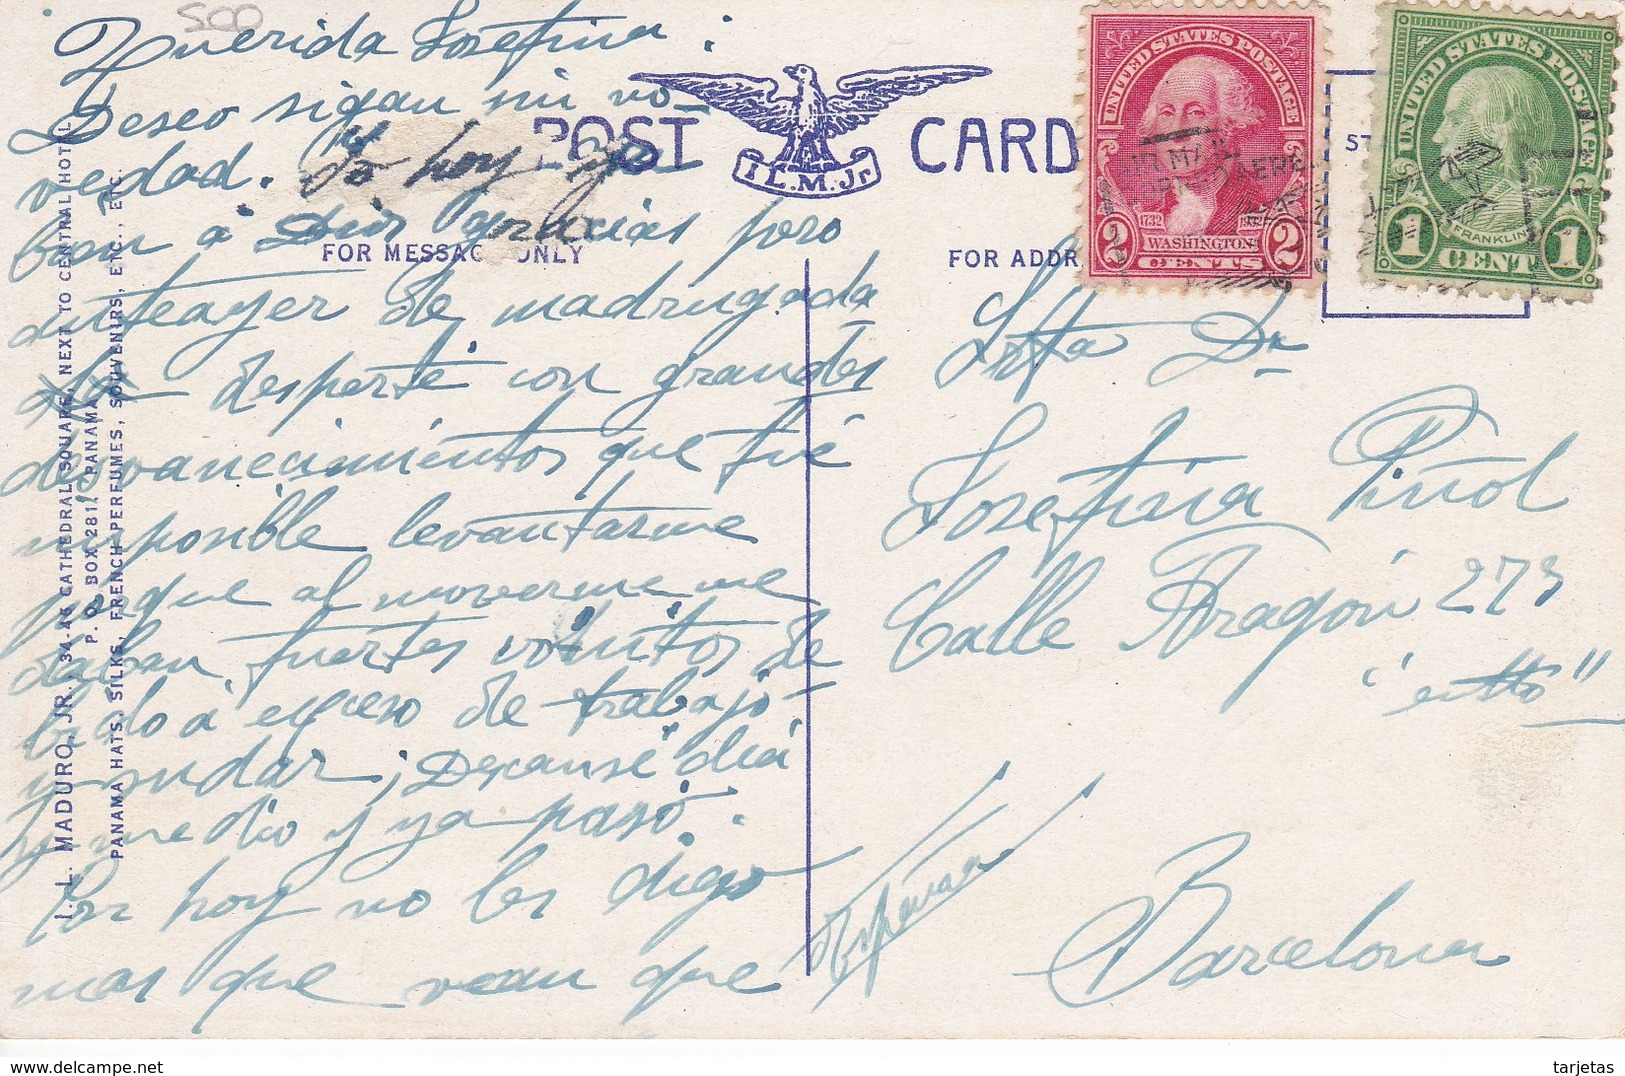 500
Querida Josefina:
Deseo sigan sin no-
vedad. Yo hoy ya
bien á Dios gracias pero
anteayer de madrugada
desperté con grandes
desvanecimientos que fué
imposible levantarme
porque al moverme me
daban fuertes vómitos de
bido á exceso de trabajo
y sudar; Descansé día
y medio y ya pasó.
Por hoy no les digo
mas que vean que
POST CARD
I.L.M. Jr
FOR MESSAGE ONLY
FOR ADDR
ST
UNITED STATES POSTAGE
1732
WASHINGTON
2 CENTS 2
UNITED STATES POSTAGE
FRANKLIN
1 CENT 1
Srta Da
Josefina Piñol
Calle Aragón 273
Barcelona
I. L. MADURO, JR., 34-46 CATHEDRAL SQUARE, NEXT TO CENTRAL HOTEL
P. O. BOX 281, PANAMA
PANAMA HATS, SILKS, FRENCH PERFUMES, SOUVENIRS, ETC., ETC.
tarjetas